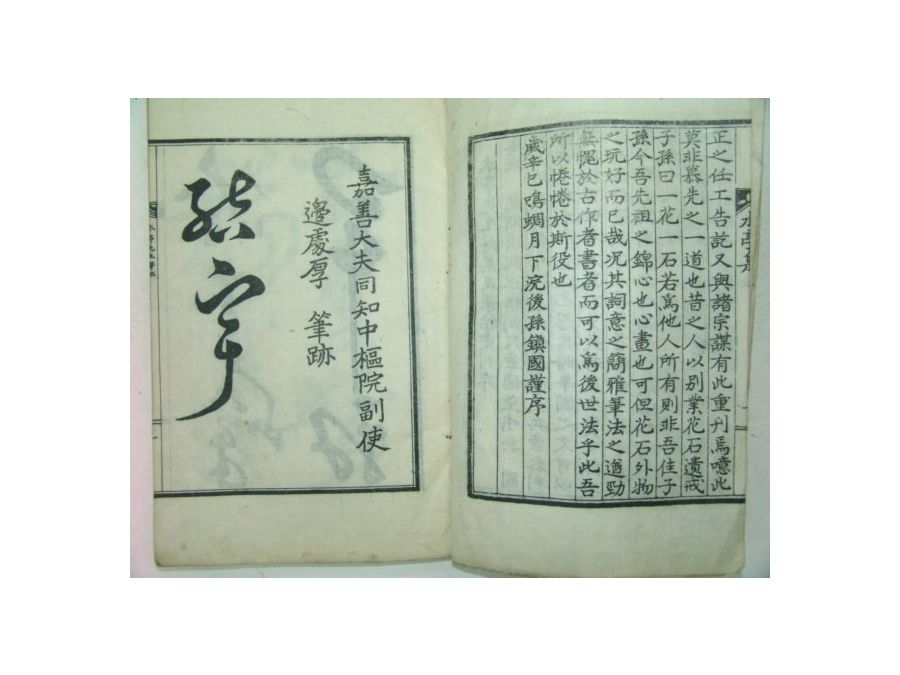 正之任工告訖又與諸宗謀有此重刊焉噫此
莫非慕先之一道也昔之人以別業花石遺戒
子孫曰一花一石若爲他人所有則非吾佳子
孫今吾先祖之錦心也心畫也可但花石外物
之玩好而已哉况其詞意之簡雅筆法之遒勁
無愧於古作者書者而可以爲後世法乎此吾
所以惓惓於斯役也
歲辛巳鳴蜩月下浣後孫鎭國謹序
嘉善大夫同知中樞院副使
邊處厚 筆跡